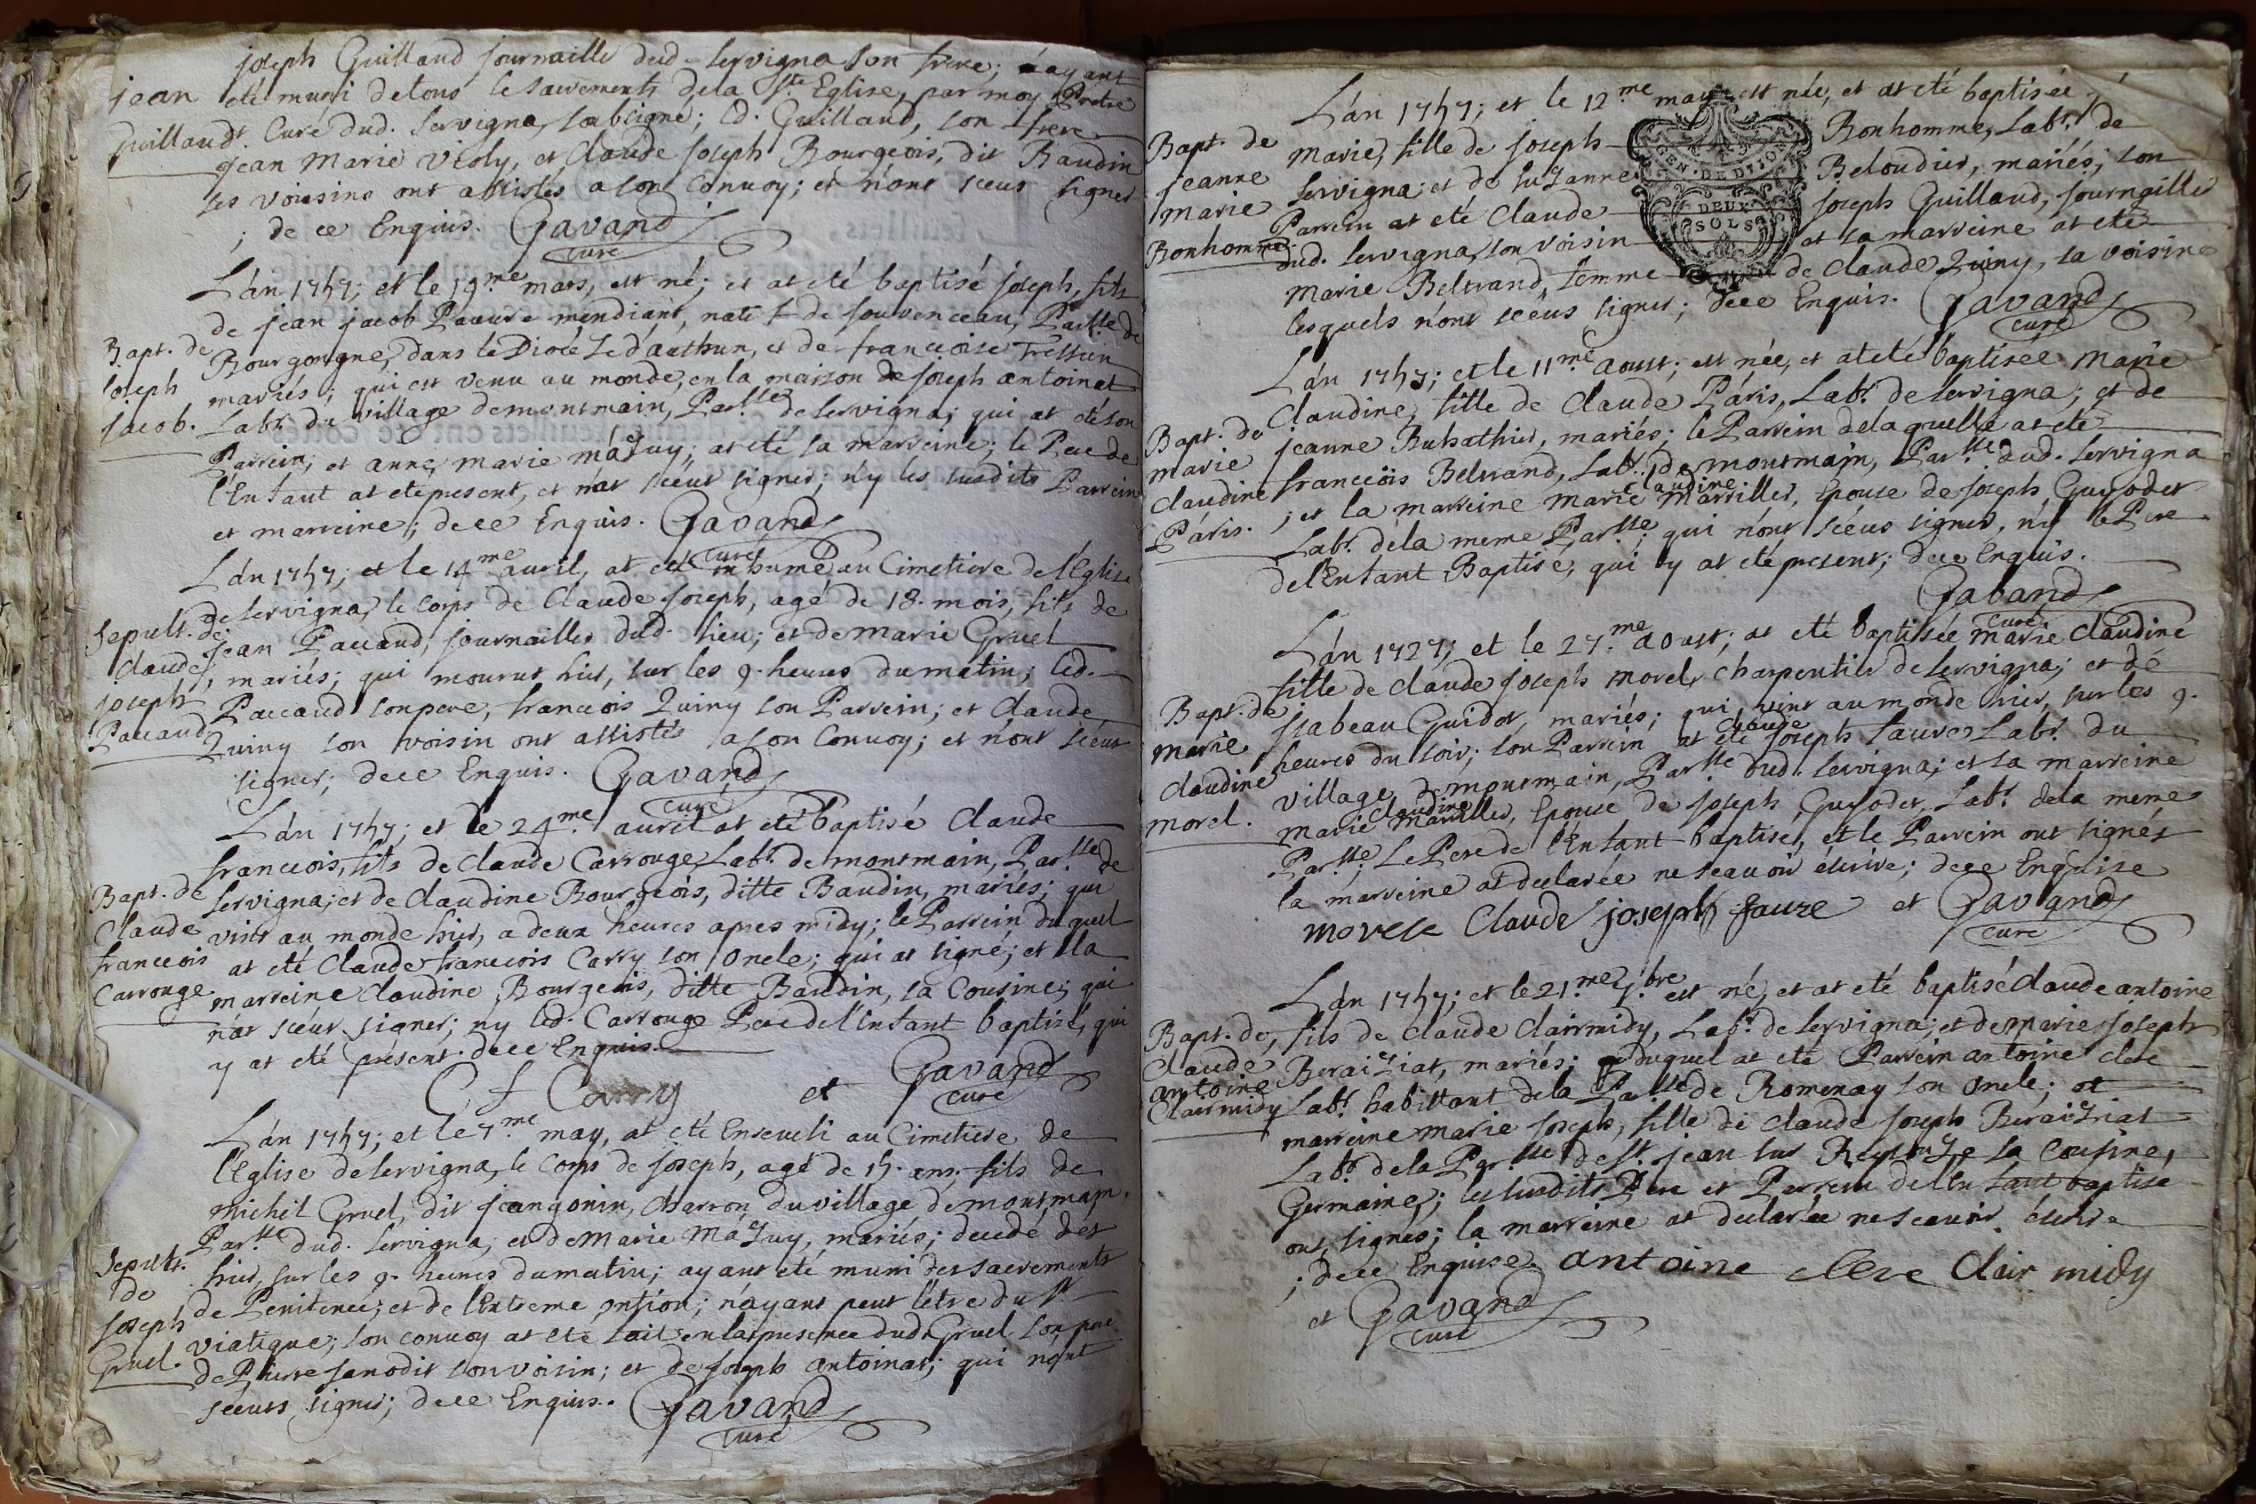 joseph Guillaud journaillé dud. Servigna son frere; ayant
jean
été muni de tous le sacrements de la Ste Eglise, par moy Pretre
Guillaud.
Curé dud. Servigna, soubsigné; led. Guillaud, son frere
jean Marie Violy, et Claude joseph Bourgeois, dit Baudin
ses voisins ont assistés a son Convoy; et n'ont sceus signer
; de ce Enquis. Gavand
curé
L'án 1757; et le 19.me mars, est né; et at eté baptisé joseph, fils
de jean jacob Pauvre mendiant, natif de souvenceau, Parsse de
Bapt. de
Bourgongne, dans le Dioceze d'authun, et de francoise
joseph
mariés; qui est venu au monde, en la maison de joseph antoinat
jacob.
Labr. du village de montmain, Parsse de Servigna; qui at eté son
Parrein; et anne marie Mázuy; at eté sa marreine; le Pere de
l'Enfant at eté present, et n'at sceut signer; n'y les susdits Parrein
et marreine; de ce Enquis. Gavand
curé
L'án 1757; et le 14.me avril, at eté inhumé au Cimetiere de l'Eglise
de Servigna, le corps de Claude joseph, agé de 18. mois, fils de
Sepult. de
jean Pacaud, journaillé dud. lieu; et de marie Gruel
Claude
, mariés; qui mourut hier, sur les 9. heures du matin; led.
joseph
Paccaud son pere, francois Quiny son Parrein; et Claude
Pacaud
Quiny son voisin ont assistés a son Convoy; et n'ont sceut
signer; de ce Enquis. Gavand
curé
L'án 1757; et le 24.me avril at eté baptisé Claude
francois, fils de Claude Carrouge Labr. de montmain, Parsse de
Bapt. de
Servigna; et de Claudine Bourgeois, ditte Baudin, mariés; qui
Claude
vint au monde hier, a deux heures apres midy; le Parrein duquel
francois
at eté Claude francois Carry son oncle; qui at signé; et la
Carrouge
marreine Claudine Bourgeois, ditte Baudin, sa Cousine; qui
n'at sceut signer; n'y led. Carrouge Pere de l'Enfant baptisé, qui
y at eté présent. de ce Enquis.
C f Carry et Gavand
curé
L'án 1757; et le 7.me may, at eté Enseveli au Cimetiere de
l'Eglise de Servigna, le corps de joseph, agé de 15. ans, fils de
michel Gruel, dit jeangonin, Charron du village de montmain,
Parsse dud. Servigna, et de Marie Mázuy, mariés; decedé dès
Sepult.
hier, sur les 9. heures du matin; ayant eté muni des sacrements
de
de Penitence; et de l'Extreme onsion; n'ayant peut l'etre du St
joseph
viatique; son convoy at eté fait en la presence dud. Gruel son pere
Gruel.
de Pierre janodit son voisin; et de joseph antoinat; qui n'ont
sceuts signer; de ce Enquis. Gavand
curé
L'án 1757; et le 12.me may est née; et at eté baptisée
Bapt. de
Marie, fille de joseph Bonhomme, Labr. de
jeanne
Servigna; et de Suzanne Beloudier, mariés; son
marie
Parrein at eté Claude joseph Guillaud, journaillé
Bonhomme.
dud. Servigna, son voisin et sa marreine at eté
Marie Beltrand, femme de Claude Quiny, sa voisine
lesquels n'ont sceus signer; de ce Enquis. Gavand
curé
GEN. DE DIJON
DEUX
SOLS
L'án 1757; et le 11.me aoust; est née, et at eté baptisée Marie
Claudine, fille de Claude Páris, Labr. de Servigna; et de
Bapt. de
jeanne Buhathier, mariés; le Parrein de laquelle at eté
marie
francois Beltrand, Labr. de montmain, Parsse dud. Servigna
Claudine
; et la marreine Marie Claudine Marriller, Epouse de joseph Guyodet
Páris.
Labr. de la meme Parsse qui n'ont sceus signer, n'y le Pere
de l'Enfant Baptisé, qui y at eté present; de ce Enquis.
Gavand
curé
L'án 1727; et le 27.me aoust; at eté baptisée marie Claudine
fille de Claude joseph Morel, charpentier de Servigna; et de
Bapt. de
jsabeau Guidot, mariés; qui vint au monde hier, sur les 9.
marie
heures du soir; son Parrein at eté Claude joseph faure Labr. du
Claudine
village de montmain, Parsse dud. Servigna; et sa marreine
morel.
marie Claudine Marriller, Epouse de joseph Guyodet, Labr. de la meme
Parsse; Le Pere de l'Enfant baptisé, et le Parrein ont signés
la marreine at declarée ne scavoir écrire; de ce Enquise
morele Claude joseph faure et Gavand
curé
L'án 1757; et le 21.me 7.bre est né, et at eté baptisé Claude antoine
Bapt. de
, fils de Claude Clairmidy, Labr. de Servigna; et de marie joseph
Claude
Beraiziat, mariés; duquel at eté Parrein antoine clere
antoine
Clairmidy
Labr. habittant de la Parsse de Romenay son oncle; et
marreine marie joseph, fille de Claude joseph Beraiziat
Labr. de la Parsse de St. jean sur Reyssouze sa Cousine,
Germaine; les susdits Pere et Parrein de l'Enfant baptisé
ont signés; la marreine at declarée ne scavoir écrire
; de ce Enquise. antoine clere Clair midy
et Gavand
curé